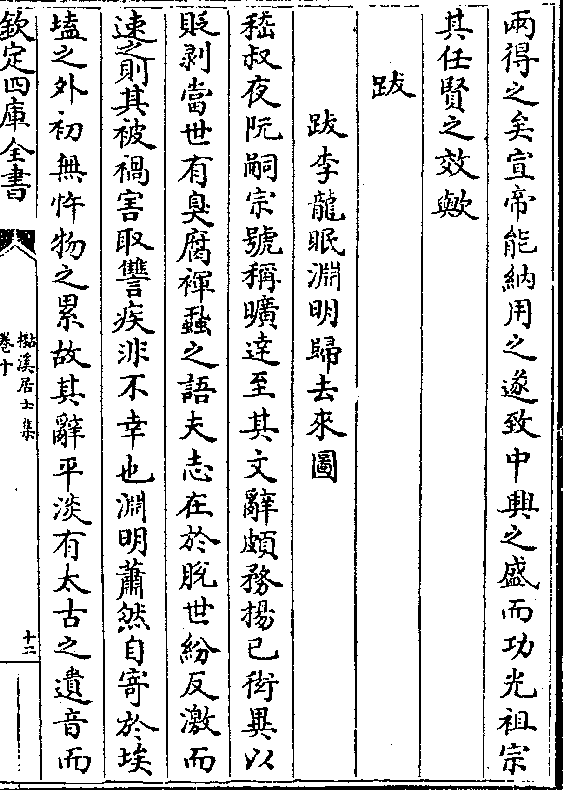 兩得之矣宣帝能納用之遂致中興之盛而功光祖宗
其任賢之效歟
跋
跋李龍眠淵明歸去來圖
嵇叔夜阮嗣宗號稱曠達至其文辭頗務揚已衒異以
貶剥當世有臭腐褌蝨之語夫志在於脫世紛反激而
速之則其被禍害取讐疾非不幸也淵明蕭然自寄於埃
𡏖之外初無忤物之累故其辭平淡有太古之遺音而
欽定四庫全書
㸃溪居士集
卷十
十二